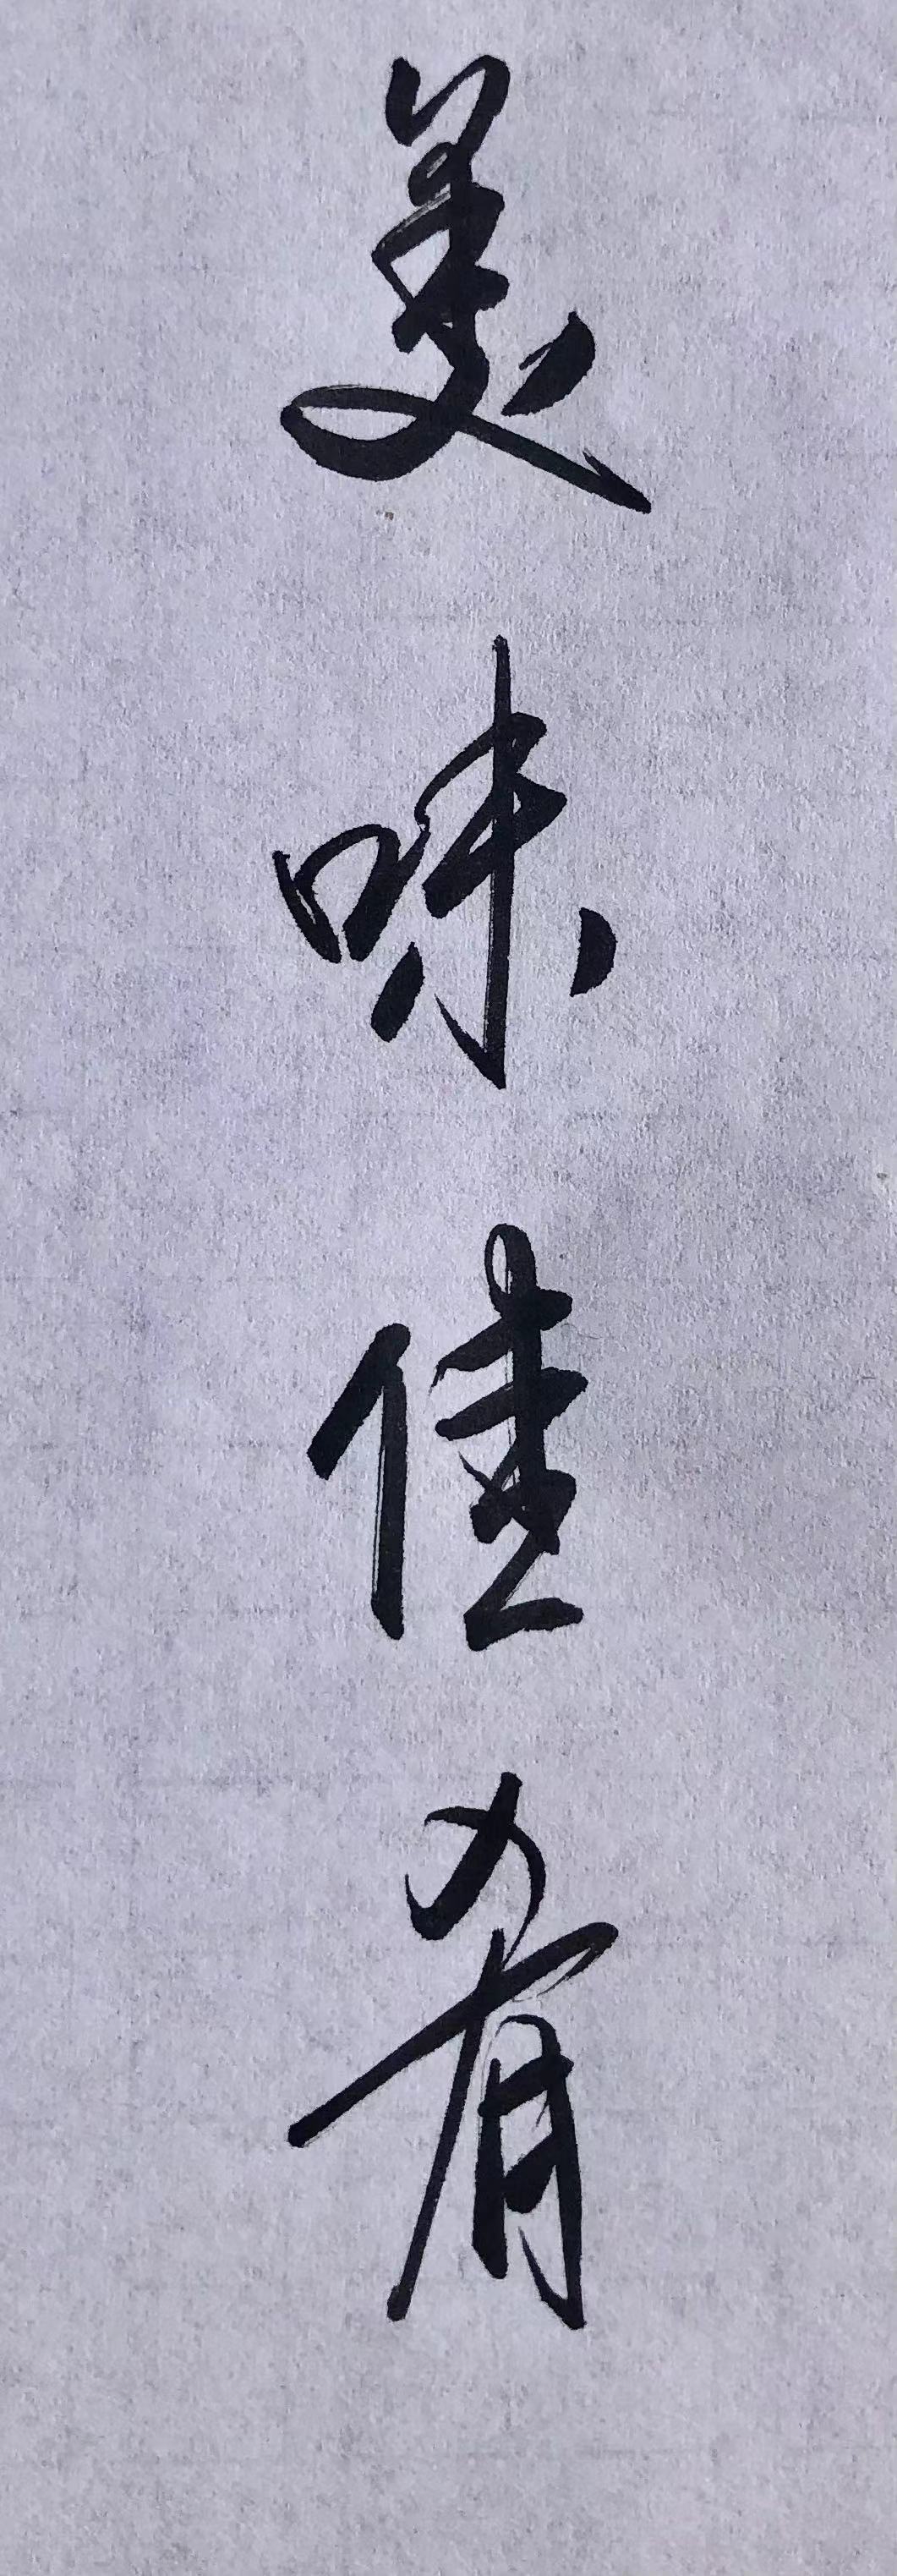 美味佳肴